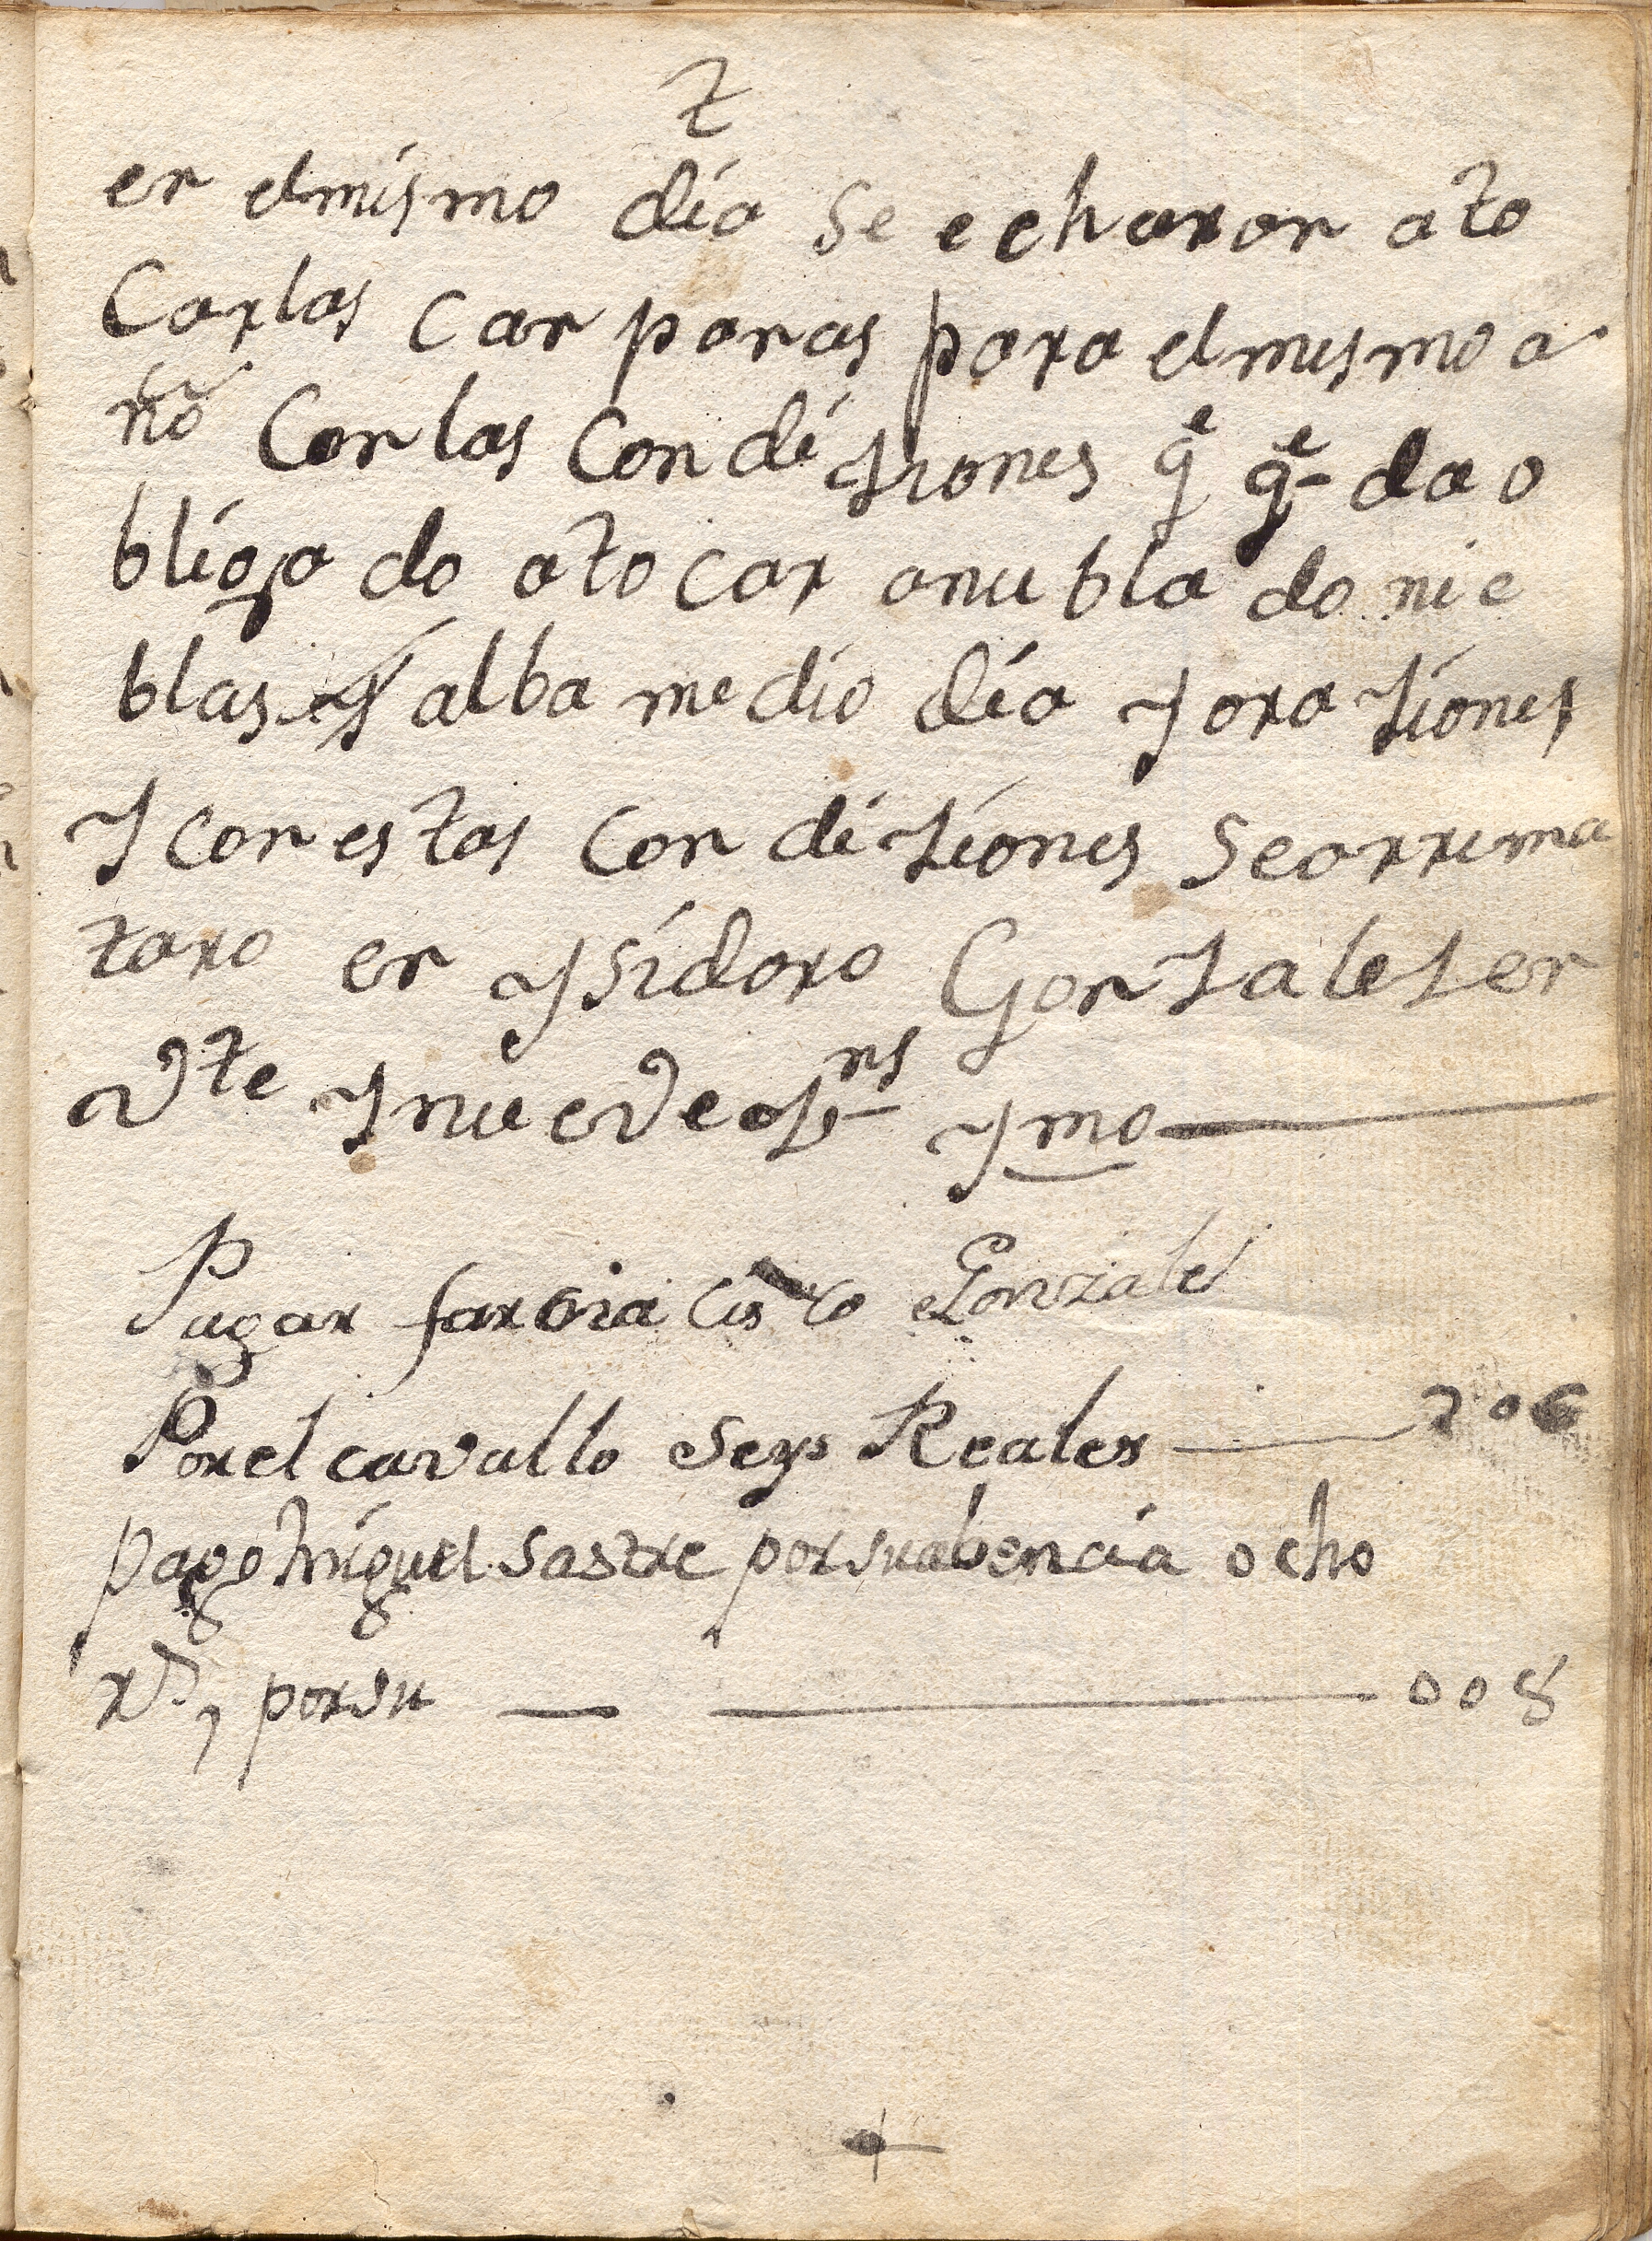 t
en elmismo dia se echaron ato
Carlas canpanas para elmismo a
ño Con las Condiziones q^e q^e da o
bligado atocar anublado nie
blas y alba medio dia y oraziones
y con estas condiziones searrema
taro en ysidoro Gonzalez en
v^te y nueve rs y mo
Pagar Gonzales
Por el cavallo seys Reales 206
pago miguel sastre por su abencia ocho
r^s, por su 008